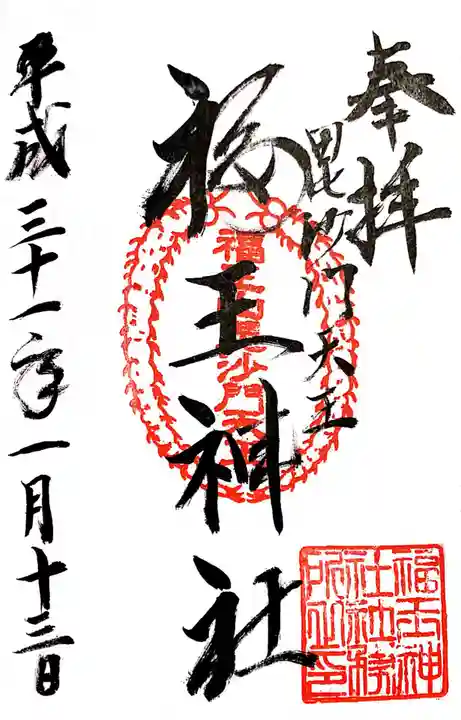 奉拝
毘沙門天王
福王神社
平成三十一年一月十三日
福王神
社社務
所之印